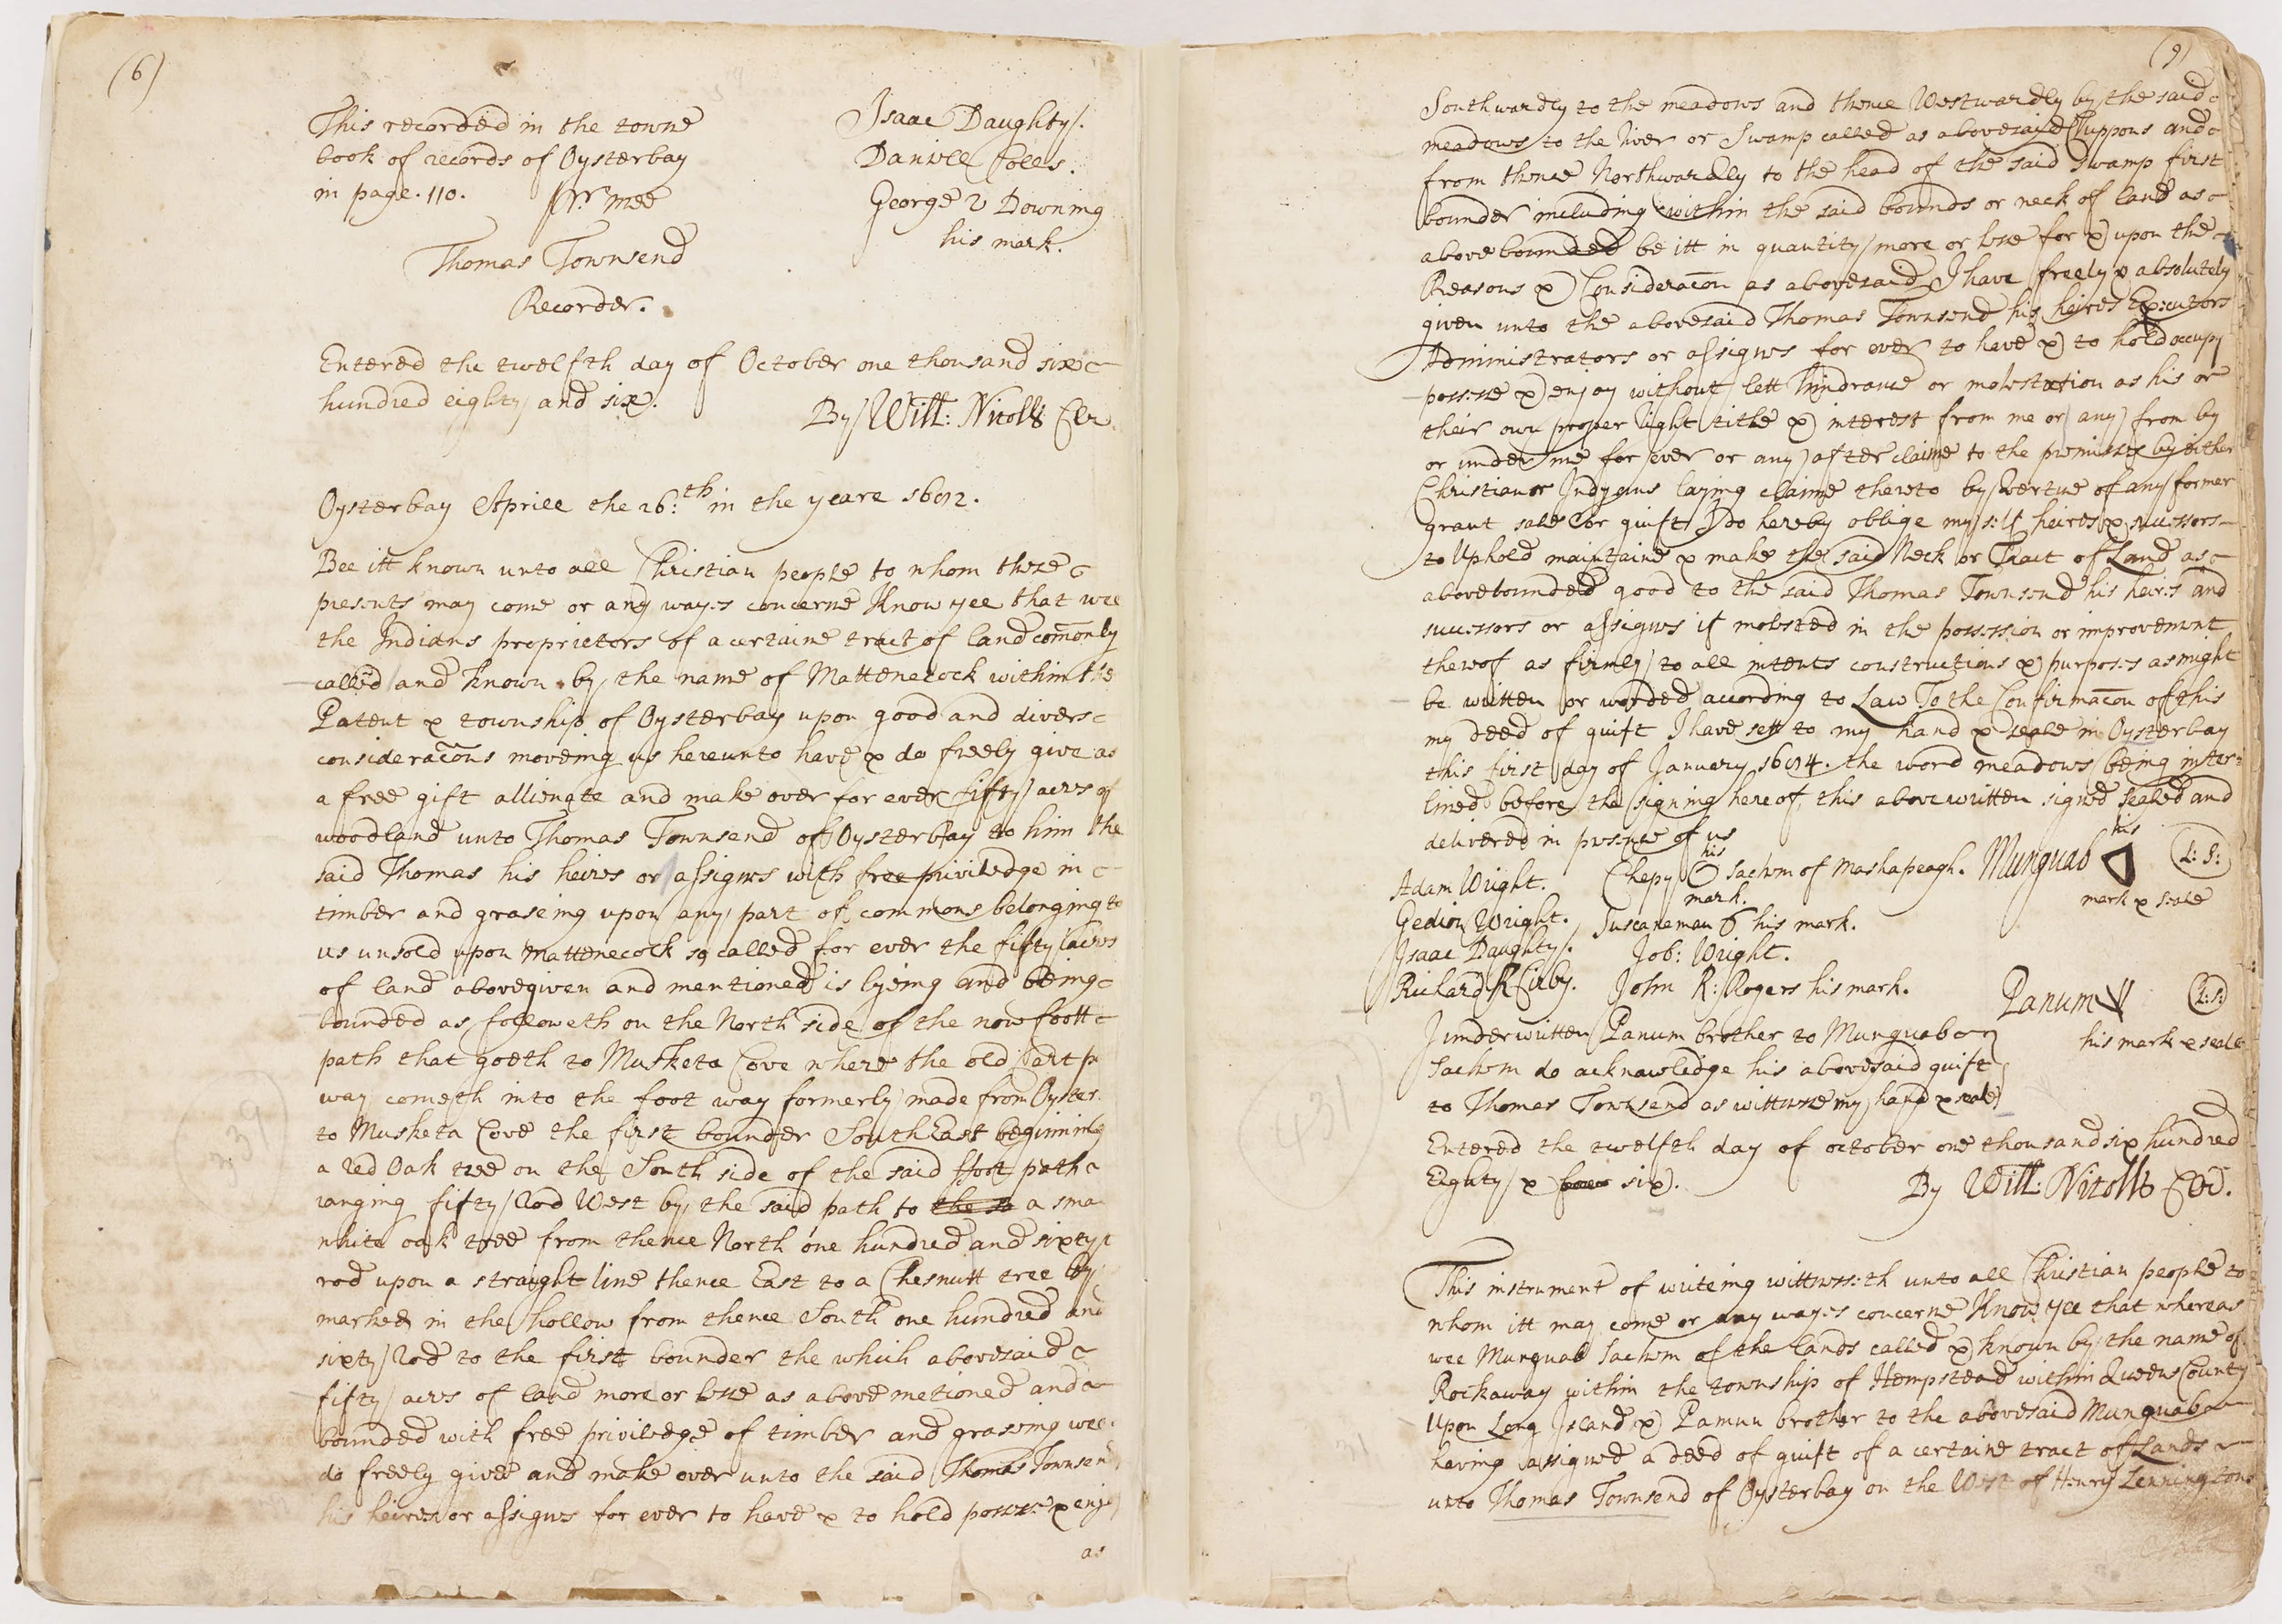 (6)
This recorded in the towne
book of records of Oysterbay
in page. 110. Pr. mee
Thomas Townsend
Recorder.
Isaac Daughty.
Daniell Coles.
George Downing
his mark.
Entered the twelfth day of October one thousand six
hundred eighty and six.
By Will: Nicolls Cler.
Oysterbay Aprill the 26:th in the yeare
Bee itt known unto all Christian people to whom these
presents may come or any wayes concerne Know yee that wee
the Indians proprietors of a certaine tract of land comonly
called and known by the name of Mattenecock within the
Patent & township of Oysterbay upon good and divers
consideracons moveing us hereunto have & do freely give as
a free gift allienate and make over for ever fifty acres of
woodland unto Thomas Townsend of Oysterbay to him the
said Thomas his heires or assignes with free priviledge in
timber and graseing upon any part of commons belonging to
us unsold upon Mattenecock so called for ever the fifty acres
of land abovegiven and mentioned is lyeing and being
bounded as followeth on the North side of the now foott
path that goeth to Musketa Cove where the old cart p
way cometh into the foot way formerly made from Oyster
to Musketa Cove the first bounder South East beginning
a red Oak tree on the South side of the said ffoot path
ranging fifty Rod West by the said path to the sa a sma
white oak tree from thence North one hundred and sixty
rod upon a straight line thence East to a Chesnutt tree by
marked in the hollow from thence South one hundred and
sixty Rod to the first bounder the which abovesaid
fifty acres of land more or lesse as above metioned and
bounded with free priviledge of timber and graseing wee
do freely give and make over unto the said Thomas Townsend
his heires or assignes for ever to have & to hold possesse & enjoy
as
(9)
Southwardly to the meadows and thence Westwardly by the said
meadows to the River or Swamp called as abovesaid Cuppons and
from thence Northwardly to the head of the said swamp first
bounder including within the said bounds or neck of land as
above bounded be itt in quantity more or lesse for & upon the
Reasons & Consideracon as abovesaid I have freely & absolutely
given unto the abovesaid Thomas Townsend his heires Executors
Administrators or assignes for ever to have & to hold occupy
possesse & enjoy without lett hindrance or molestation as his or
their own proper right title & interest from me or any from by
or under me for ever or any after claime to the premisses by either
Christian or Indyans laying claime thereto by vertue of any former
grant sale or guift I do hereby oblige my self heires & successors
to Uphold maintaine & make the said Neck or Tract of Land as
abovebounded good to the said Thomas Townsend his heires and
successors or assignes if molested in the possession or improvement
thereof as firmly to all intents constructions & purposes as might
be written or worded according to Law To the Confirmacon of this
my deed of guift I have sett to my hand & seale in Oysterbay
this first day of January the word meadows being inter
lined before the signing hereof, this above written signed sealed and
delivered in presence of us
Adam Wright.
Gedion Wright.
Isaac Daughty.
Richard Kirby.
his
Chepy Sachem of Mashapeagh.
mark.
Suscaneman his mark.
Job: Wright.
John R: Rogers his mark.
his
Munguab L: S:
mark & seale
Panum L:S:
his mark & seale
I underwritten Panum brother to Munguab
Sachem do acknowledge his abovesaid guift
to Thomas Townsend as wittnesse my hand & seale
Entered the twelfth day of october one thousand six hundred
Eighty & six.
By Will: Nicolls Cler.
This instrument of writeing wittnesseth unto all Christian people to
whom itt may come or any wayes concerne Know yee that whereas
wee Munguab Sachem of the lands called & known by the name of
Rockaway within the township of Hempstead within Queens County
Upon Long Island & Pamun brother to the abovesaid Munguab
having assigned a deed of guift of a certaine tract of Lands
unto Thomas Townsend of Oysterbay on the West of Henry Lenningtons